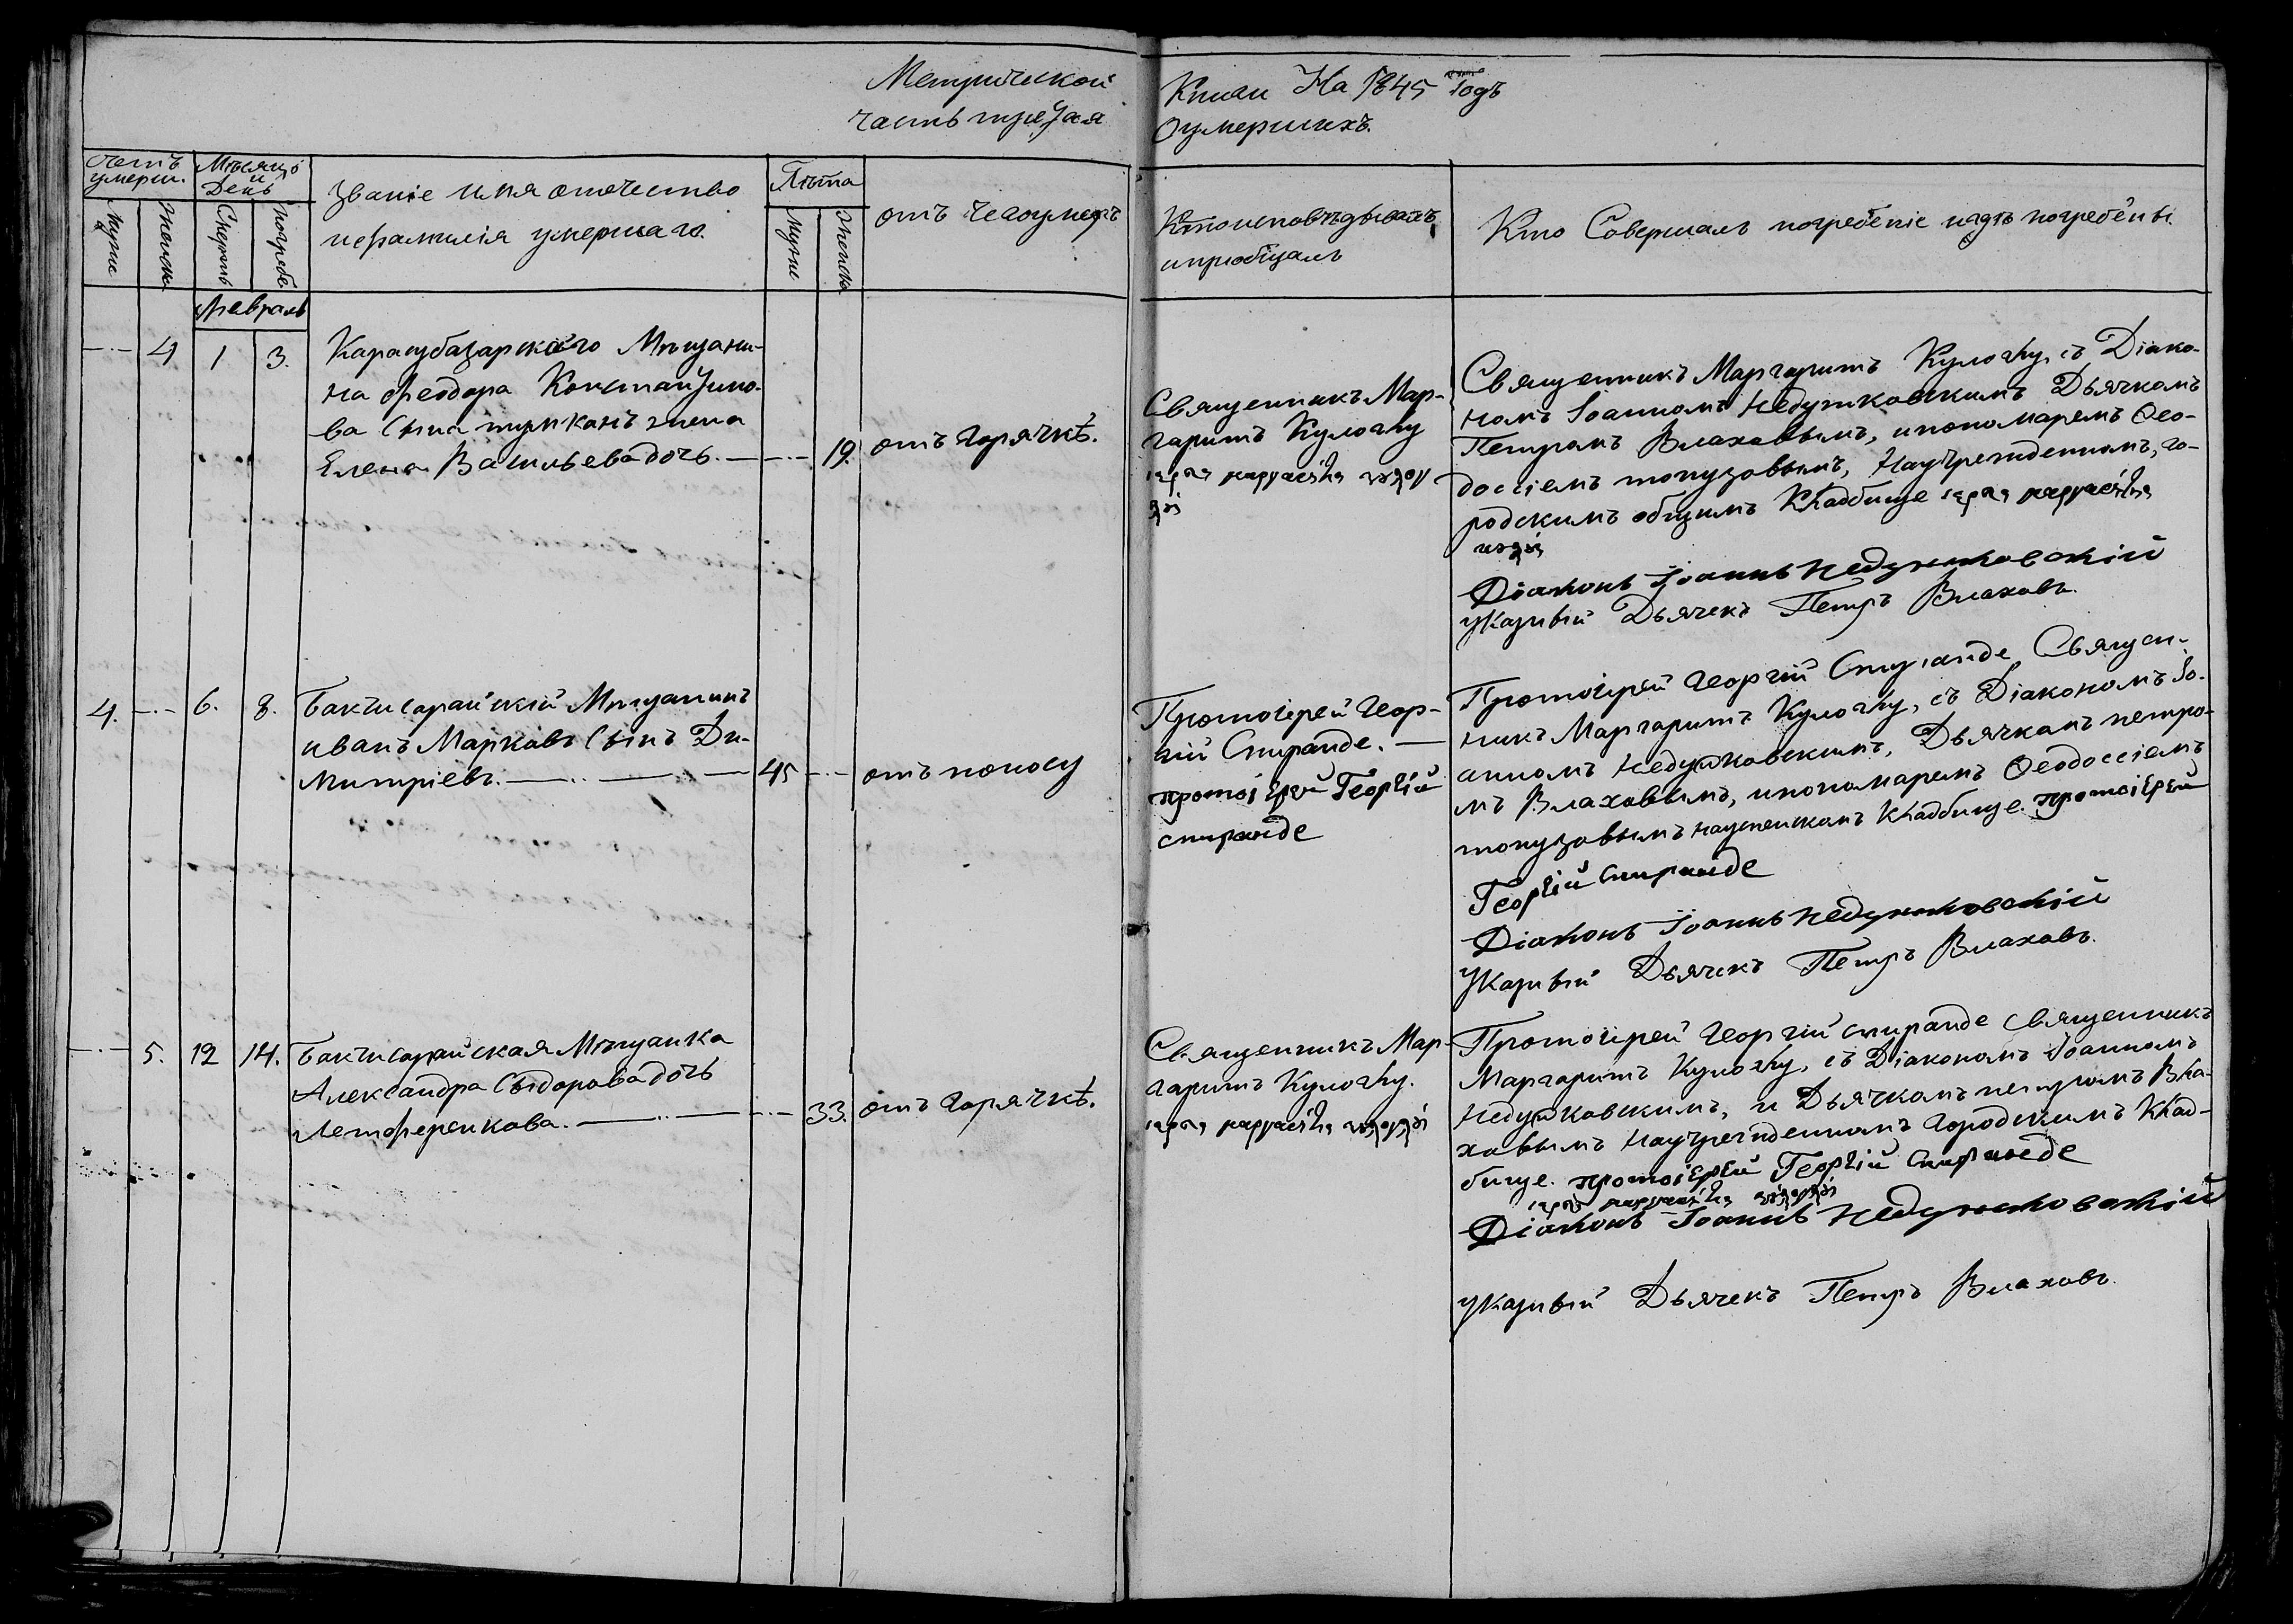 Метрической
часть третая
Книги На 1845 Годъ
Оумершихъ.
Счетъ умерш.
Мѣсяцъ и День
Званіе имя отечество
ифамилія умершаго.
Лѣта
отъ чегоумеръ
Мужс
Женск
Смерть
Погребе
Мужс
Женск
Ктоисповѣдывалъ
ипріобщалъ
Кто Совершалъ погребеніе игдѣ погребены
Февраль
4 1 3.
Карасубазарскаго Мѣщани-
на Феодора Константино-
ва Сына жена
Елена Васильева дочь. 19. отъ горячкѣ.
Священникъ Мар-
гаритъ Кулогду
Священникъ Маргаритъ Кулогду, съ Діако-
номъ Іоанномъ Недужковскимъ Дьячкомъ
Петромъ Влаховымъ, ипономаремъ Ѳео-
досіемъ топузовымъ, Научрежденномъ, го-
родскимъ общимъ Кладбище
Діаконъ Іоаннъ Недужковскій
Указный Дьячекъ Петръ Влаховъ.
4. 6. 8.
Бакчисарайскій Мѣщанинъ
иванъ Марковъ Сынъ Ди-
митріевъ. 45 отъ поносу
Протоіерей Геор-
гій Спиранде.
протоіерей Георгій
спиранде
Протоіерей Георгій Спиранде, Священ-
никъ Маргаритъ Кулогду, съ Діакономъ Іо-
анномъ Недужковскимъ, Дьячкомъ петро-
мъ Влаховымъ, ипономаремъ Ѳеодосіемъ
топузовымъ Кладбище. протоіерей
Георгій Спиранде
Діаконъ Іоаннъ Недужковскій
Указный Дьячекъ Петръ Влаховъ.
5. 12 14.
Бакчисарайская Мѣщанка
Александра Сыдорова дочь
33. отъ Горячкѣ.
Священникъ Мар-
гаритъ Кулогду.
Протоіерей Георгій спиранде священникъ
Маргаритъ Кулогду, съ Діакономъ Іоанномъ
Недужковскимъ, и Дьячкомъ петромъ Вла-
ховымъ Научрежденномъ Городскимъ Клад-
бище. протоіерей Георгій Спиранде
Діаконъ Іоаннъ Недужковскій
Указный Дьячекъ Петръ Влаховъ.